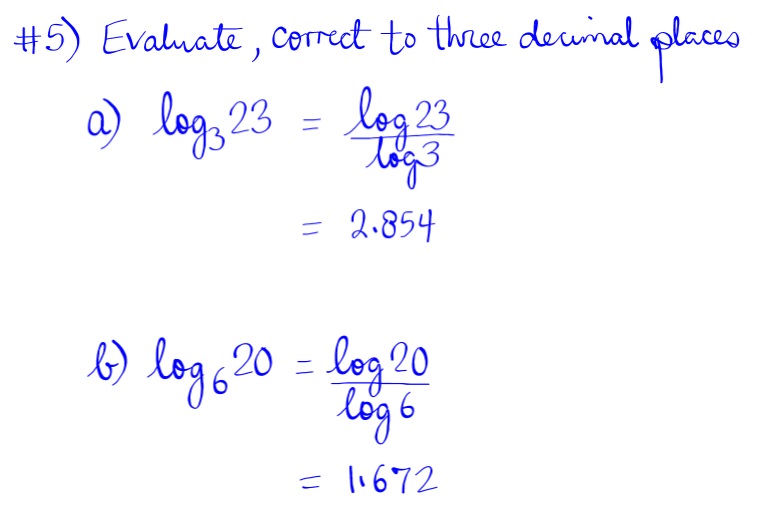 #5) Evaluate, correct to three decimal places
a) log₃23 = log 23 / log 3
= 2.854
b) log₆20 = log 20 / log 6
= 1.672